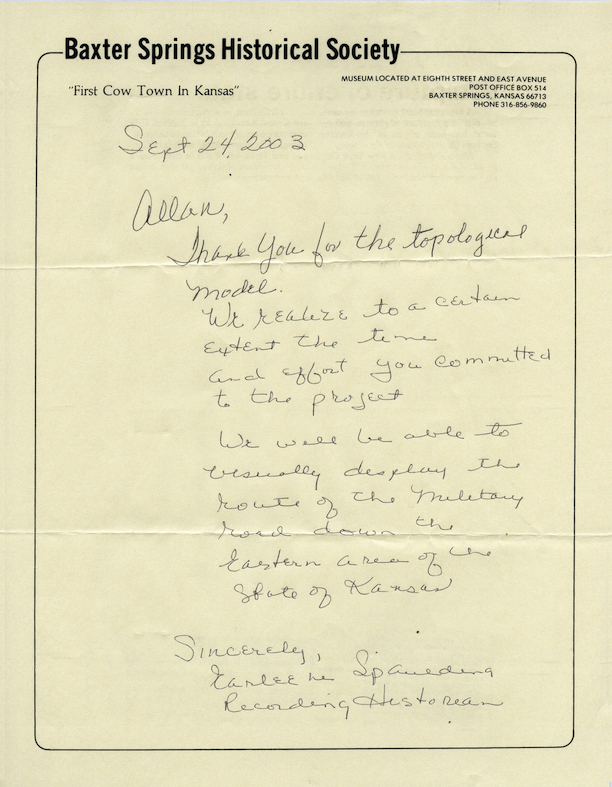 Baxter Springs Historical Society
"First Cow Town In Kansas"
MUSEUM LOCATED AT EIGHTH STREET AND EAST AVENUE
POST OFFICE BOX 514
BAXTER SPRINGS, KANSAS 66713
PHONE 316-856-9860
Sept 24, 2003
Allan,
Thank You for the topological
model.
We realize to a certain
extent the time
and effort you committed
to the project
We will be able to
visually display the
route of the Military
road down the
Eastern area of the
State of Kansas
Sincerely,
Earlene Spaulding
Recording Historian